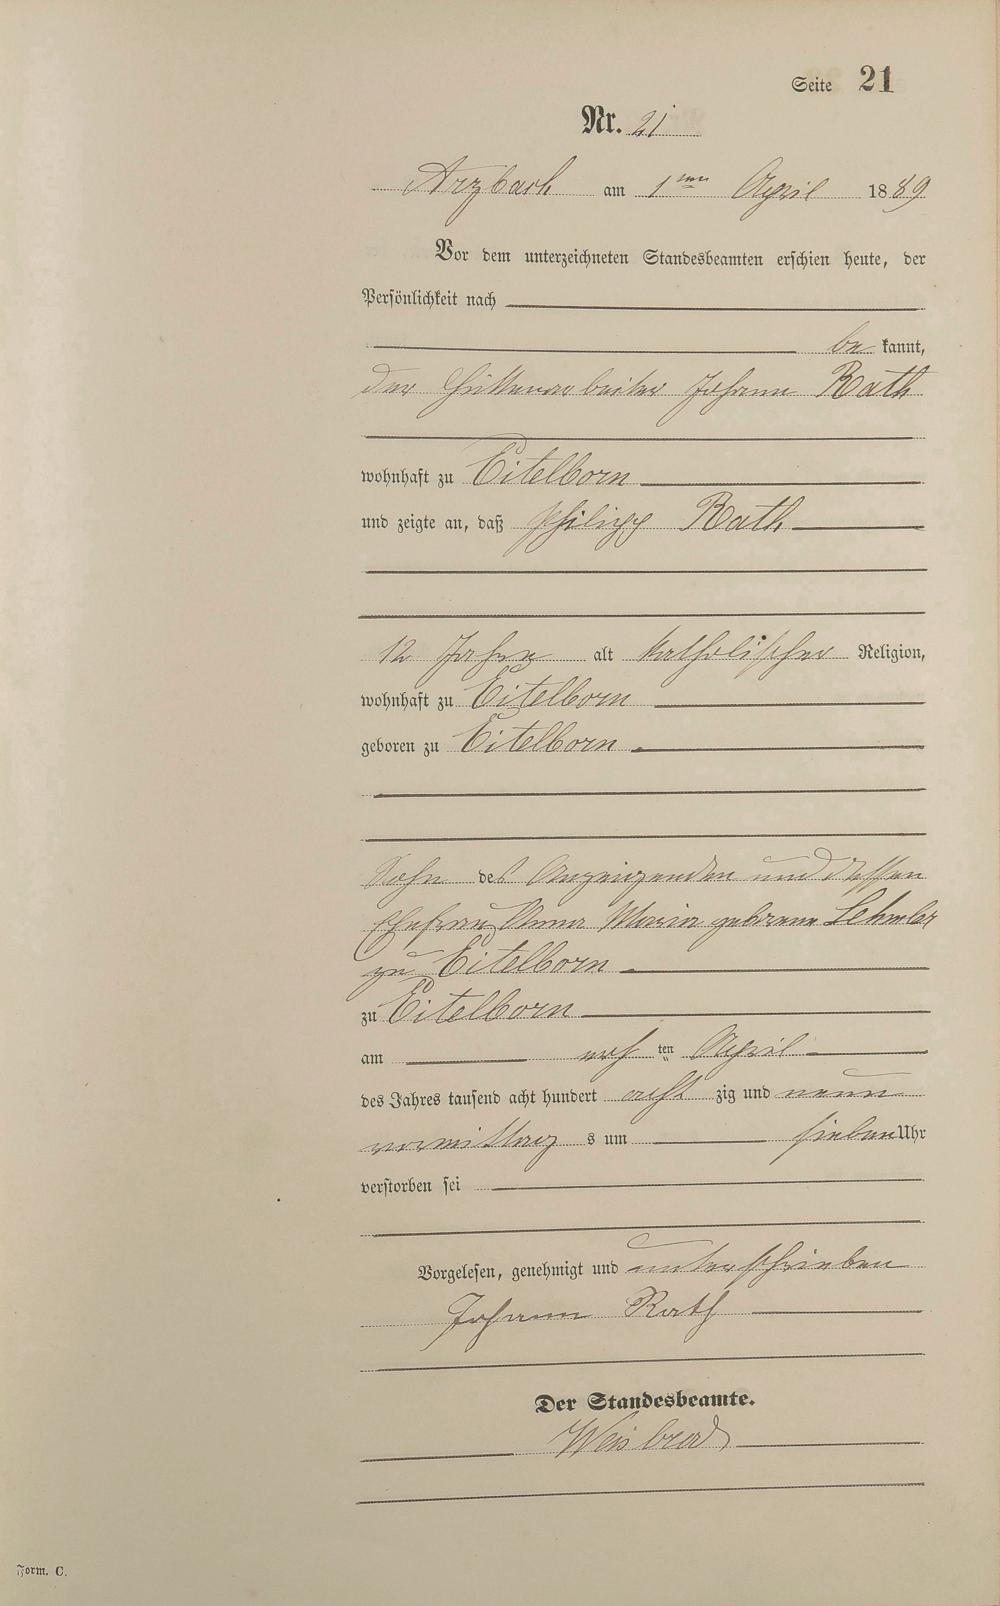 Seite 21
Nr. 21
Arzbach am 1ten April 1889
Vor dem unterzeichneten Standesbeamten erschien heute, der
Persönlichkeit nach
be kannt,
der Hüttenarbeiter Johann Rath
wohnhaft zu Eitelborn
und zeigte an, daß Philipp Rath
12 Jahre alt katholischer Religion,
wohnhaft zu Eitelborn
geboren zu Eitelborn
Sohn des Anzeigenden und dessen
Ehefrau Anna Maria geborene Lehmler
zu Eitelborn
zu Eitelborn
am ten April
des Jahres tausend acht hundert acht zig und neun
vormittag s um sieben Uhr
verstorben sei
Vorgelesen, genehmigt und unterschrieben
Johann Rath
Der Standesbeamte.
Weisbrod
Form. C.